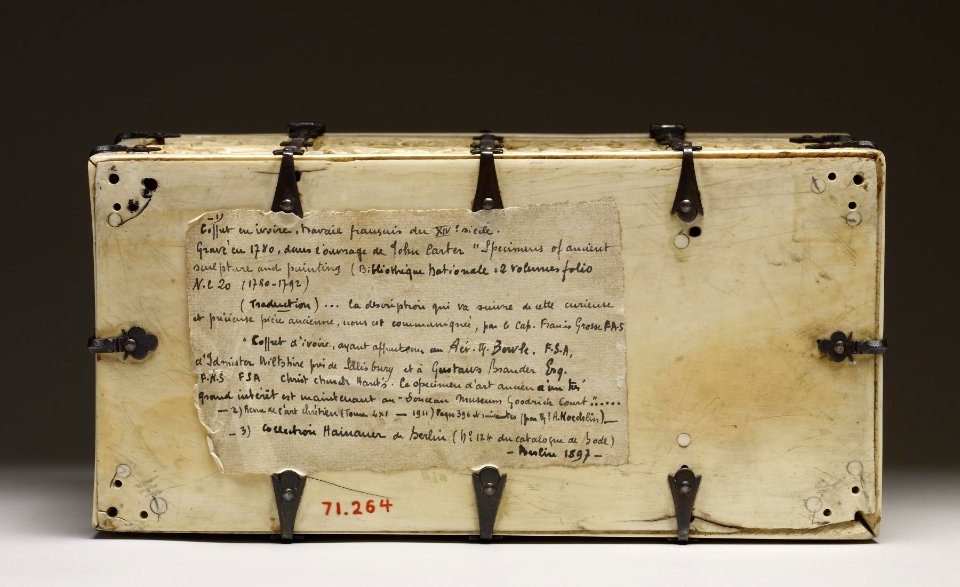 —1)
Coffret en ivoire, travail français du XIVe siècle.
Gravé en 1780, dans l'ouvrage de John Carter "Specimens of ancient
sculpture and painting (Bibliothèque Nationale : 2 volumes folio
N.C 20 (1780-1792)
(Traduction) ... la description qui va suivre de cette curieuse
et précieuse pièce ancienne, nous est communiquée, par le Cap. Francis Grosse F.A.S
"Coffret d'ivoire, ayant appartenu au Rév. Bowle, F.S.A,
d'Idmister Wiltshire près de Salisbury et à Gustavus Brander Esq.
F.R.S FSA Christ church Hants. Ce specimen d'art ancien a un très
grand intérêt est maintenant au "Douceau Museum Goodrich Court".....
— 2) Revue de l'art chrétien (Tome LXI — 1911) Pages 396 et suivantes (par A. Koechlin) —
— 3) Collection Hainauer de Berlin (No 124 du catalogue de Bode)
— Berlin 1897 —
71.264